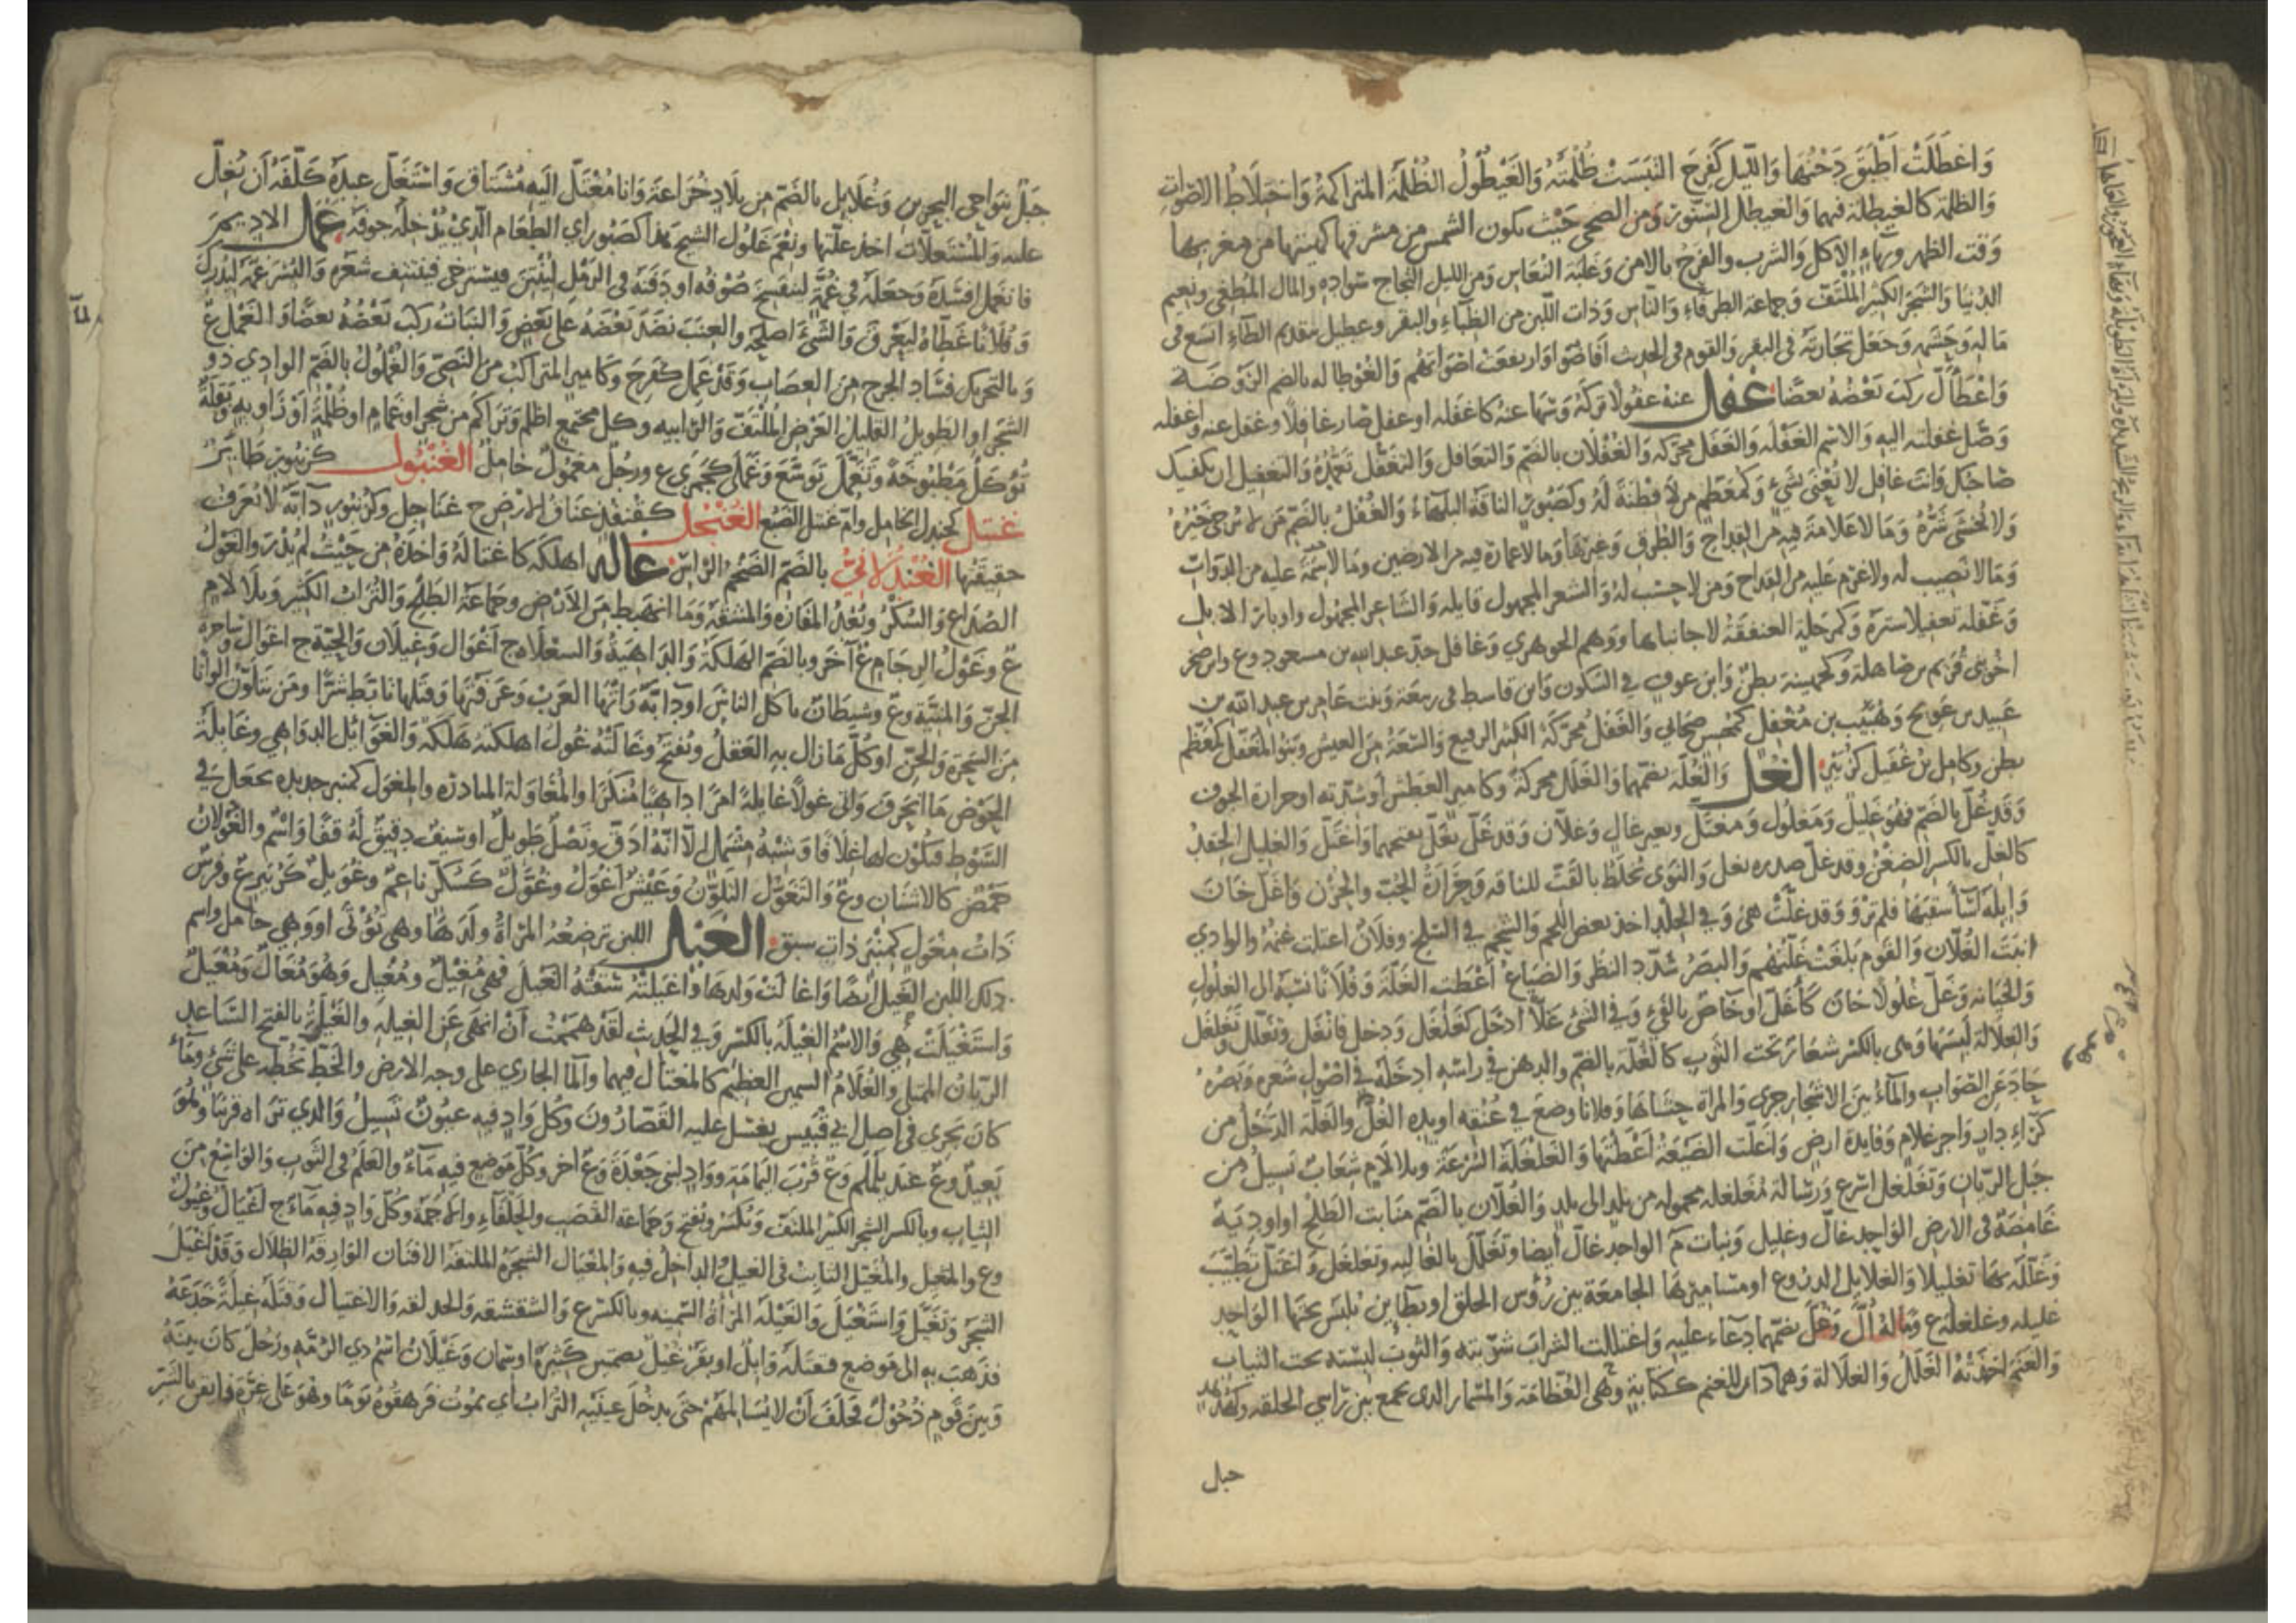 وَاغطَلَتْ اَطْبَقَ دَجْنُهَا وَاللّيل كَفَرِحَ التبَسَتْ ظُلْمَتُه وَالغَيْطُولُ الظُلْمَة المتراكمةُ وَاخْتِلَاطُ الاصوَاتِ
وَالظلمة كالغيطلة فيهما والغيطل السّنّور وَمن الضحى حَيْث تكون الشمس من مشرقها كهيئتها من مغربها
وَقت الظهر وبهاءٍ الاكل والشرب والفرح بالامن وَغَلَبة النعاس وَمن الليل التجاج سَواده والمال المُطغِى ونعيم
الدّنيا وَالشجَر الكثير المُلتَفّ وَجماعة الطرفاءِ وَالنّاس وَذات اللّبن من الظباءِ والبقر وغطيل بتقديم الطاءِ اتسَع فى
مَاله وَحشمه وَجعَل تجارته فى البقر والقوم فى الحديث افاضُوا وَارتفعَت اصواتهُم والغُوطالة بالضم الرَّوضَة
وَاغْطَأَلّ رَكبَ بَعْضُهُ بعضًا غفل عنه غفُولا تركَهُ وَسَهَا عنهُ كاغفَله او غفل صَار غافِلًا وغفل عنه واغفله
وَصّل غفلته اليه والاسم الغَفْلة والغَفَل محرّكه وَالغُفْلَان بالضّم وَالتغافل والتغَفّل تَعَمُّدُهُ وَالتغفيل ان يكفيك
صَاحبك وَانتَ غافِل لا تُعْنَى بشَىءٍ وَكمُعَظّم من لا فِطْنَة لَهُ وكصَبُور النَاقة البلهاءُ وَالغُفْلُ بالضّمّ مَن لا يُرجَى خَيْرُهُ
وَلا يُخشَى شَرُّهُ وَمَا لا عَلامَة فِيهِ من القِداح وَالطُرق وَغيرها وَمَا لا عمارة فيه من الارضين وما لا سِمَة عليه من الدّواتّ
وَمَا لا نصِيب له ولا غرم عليه من القداح وَمن لا حسَب لَهُ والشعر المجهول قايله والشاعر المجهول واوبار الابل
وَغَفّله تغفيلا سَترَهُ وَكمرحَلة العنفقَةُ لا جانباها ووهم الجوهري وَغَافِل جدّ عبد الله بن مسعود وع واسْ صَخر
اخُوى قُريم بن صاهلة وكجهينة بطنٌ وَابن عوف فى السّكون وَابن قاسط فى ربيعة وَبنت عامر بن عبد الله بن
عبيد بن عَويج وَهُبَيْب بن مُغْفِل كمُحسن صَحَابي وَالغَفَلُ محرّكة الكثير الرفيع وَالسَّعَةُ مِن العيش وبَنو المُغَفَّل كمُعَظّم
بطن وكامِل بن غُفَيل كزبير الغُلّ وَالغُلّة بضمّهما والغَلَل محركة وكامير العَطش او شدّته او حرارة الجوف
وَقد غُلّ بالضّمّ فهُوَ غَلِيلٌ وَمَغْلُول وَمغتَلّ وبعير غالّ وَغلّان وَقد غَلّ يَغَلّ بفتحهما وَاغتَلّ والغليل الحقدُ
كالغلّ بالكسر الضِغْنُ وقد غلّ صدره يغل والنَوى يُخلَطُ بالقَتّ للناقه وَحَرَارَةُ الحُبّ والحُزن وَاغَلّ خَانَ
وَابلَهُ اسَآءَ سَقيَهَا فلم تَرْوَ وَقد غلّتْ هى وَفى الجلد اخذ بعض اللحم والشحم فى السّلخ وفلَانٌ اغتلت غنمه والوادي
انبَتَ الغُلّان وَالقَوم بَلغَتْ غَلّتُهم وَالبَصَرُ شدّد النظر وَالضيَاعُ اَعْطَت الغَلّة وَفُلانًا نسَبَه الى الغلولِ
وَالخيانه وَغَلّ غُلُولًا خَانَ كَأَغَلّ او خاصّ بالفَىْءِ وَفى الشئ غَلًّا ادخَل كغَلْغَل وَدخل فانغَل وتغلّل وَتغَلغَل
وَالغِلالة لَبِسَهَا وَهى بالكسر شعَار تَحت الثَّوب كالغُلّة بالضّم والدهنَ فى راسه ادخَلَهُ فى اُصُول شعره وَبَصَرُه
حادَ عَن الصّوَاب والماءُ بينَ الاشجار جرى وَالمراة حشَاهَا وَفلانًا وَضعَ فى عُنُقه او يده الغُلّ والغَلّة الدَّخْل من
كرَاءِ دارٍ واجر غلام وَفايدة ارض وَاغلّت الضَيْعَة اَعْطَتْهَا وَالغَلْغَلَة السُّرْعَة وبلا لَامٍ شِعَابٌ تَسِيلُ مِن
جَبَل الرّيان وَتغَلغَل اسْرع وَرسَالة مُغَلغلة محمولة من بلد الى بلد وَالغُلّان بالضّم منَابت الطَّلْح او اودِيَةٌ
غَامِضَةٌ فى الارض الوَاحد غالّ وغليل وَنبات م الواحد غالّ ايضا وتغَلّل بالغالية وتغلغل وَاغتَلّ تطيّبَ
وَغَلّله بهَا تغليلا والغلايل الدروع او مسَاميرها الجامعة بين رُؤس الحلق او بَطاين تُلبَس تحتها الوَاحد
غليله وغلغلة ع وَمَاله اُلّ وَغُلّ بضمّهما دعاء عليه وَاغتللت الشراب شربته وَالثوبَ لبسته تحت الثياب
وَالغنَم اخذتهُ الغَلَلُ والغلالة وَهما داء للغنم ككتابة وهى العُظَامَة وَالمسمار الذى يجمع بين رَاسى الحلقه وكهُدهد
حبل
جَبَلٌ بنَوَاحِى البحرين وَغُلَايل بالضّم مِن بلَادِ خُزَاعَة وَانا مُغْتَلّ اليه مُشتاق وَاسْتَغَلّ عبدَهُ كَلّفَهُ اَن يُغِلّ
عليه وَالمُسْتغلّات اخذ غلّتها ونِعْمَ غَلُول الشيخ هَذا كصَبُور اى الطعَام الّذي يُدْخِلُهُ جوفه غمل الاديم
فانغمل افسَدَهُ وَجعَلَهُ فى غُمَّةٍ لينفسِخ صُوْفُه او دَفَنَهُ فى الرّمْل ليُنْتِنَ فيَسترخى فيَنتتف شعَرُهُ وَالبُسْرَ غمّه ليُدْرِكَ
وَفُلَانًا غَطّاهُ ليَعْرَقَ وَالشَّىْءَ اصلَحَه والعِنَبَ نضَدَ بَعْضَهُ عَلَى بَعْضٍ وَالنبَاتُ رَكبَ بَعْضُهُ بعضًا وَالغمْل ع
وَبالتحريك فسَاد الجرح مِن العصَاب وَقد غَمِل كَفَرِحَ وكامير المتراكبُ مِن النّصِىّ وَالغُمْلُولُ بالضّم الوادِي ذو
الشجَر او الطّويل القليل العَرْض المُلتَفّ والرابيه وكل مجتمع اظلم وتَراكَمَ من شجر او غمَامٍ او ظُلْمةٍ اوْ زَاويَةٍ وبَقْلَةٌ
تُوكلُ مَطْبُوخَةً وتَغَمَّلَ تَوَسّعَ وَغَمَلَى كجَمَزَى ع ورجُلٌ مَغمُولٌ خَامِلٌ الغُنْبُول كزنبور طائِرٌ
غنتل كجندل الخامِل وامّ غنتل الضَّبُعُ الغُنْجُل كقُنْفُذٍ عَناقُ الارْضِ ج غنَاجِل وكزنبور دآبّة لا تُعرَفُ
حقيقتها الغُنْدُلانِىُّ بالضّم الضَّخْمُ الرَّاس غاله اهلكَه كاغتالَهُ وَاخذهُ مِن حَيْثُ لمْ يَدْرِ وَالغَوْلُ
الصُّدَاع وَالسُّكْرُ وبُعْدُ المفازَة والمَشقة وَما انهَبَط مِن الاَرْضِ وجماعَة الطَّلْحِ وَالتُرَابُ الكثير وَبلا لامٍ
ع وغَوْلُ الرِجَامِ ع آخَر وبالضّم الهلكةُ وَالداهيَةُ وَالسعلاة ج اَغْوَال وَغِيلَان وَالحيّة ج اغوَال وسَاحِرَةُ
الجنّ وَالمنيّة وع وشيطَانٌ ياكل الناسَ او دابّةٌ رَاَتْهَا العَرَبُ وَعَرَفَتْهَا وَقتلها تَأبَّط شرًّا ومَن يتلوّن الوانًا
مِن السَحَرَة والجنّ او كُلّ مَا زال بِهِ العَقلُ ويُفتح وغَالَتْهُ غُولٌ اهلكتهُ هَلكَة وَالغَوَآئِل الدوَاهى وغايلةُ
الحَوْض مَا انخرَق وَاتى غولًا غايلةً امرًا داهيًا مُنكَرًا والمُغَاوَلة المبادرَة والمِغوَل كمنبر حديدة تجعَل فى
السَّوْط فيكون لها غِلافًا وَشبْهُ مِشْمَل الّا انّه اَدَقّ ونَصْلٌ طويلٌ او سَيْفٌ دقيقٌ لَهُ قفًا وَاسْم والغَوْلانُ
حَمْضٌ كالاشنان وع وَالتغوّل التلوّنُ وَعَيْشٌ اغوَلُ وغُوَّلٌ كَسُكَّر ناعمٌ وغُوَيلٌ كزُبَير ع وفَرسٌ
ذاتُ مِغوَلٍ كمِنبَر ذات سبق الغَيْل اللبن ترضِعُه المرْأةُ ولَدَهَا وهى تُؤْتَى او وَهى حَامل واسم
ذلك اللبن الغَيل ايضًا وَاغالتْ ولدها واغيلتهُ سَقَتْهُ الغَيلَ فهى مُغِيلٌ ومُغْيِل وَهُوَ مُغَالٌ ومُغْيَلٌ
وَاستغْيَلتْ هى وَالاسْم الغِيلة بالكسْر وَفى الحَديث لقدْ هممْتُ اَنْ انْهى عَنِ الغِيلَة وَالغَيْلُ بالفتح السّاعد
الرّيان الممتلى وَالغُلَامُ السمين العظِيم كالمغتَال فيهما وَالمآ الجارى على وجه الارض والخَطّ تخُطّه على شَىْءٍ وَمَآءٌ
كانَ يَجرى فى اصل ابى قُبَيْس يغسل عليه القصّارُونَ وَكلّ وادٍ فيه عيُونٌ تَسِيلُ وَالذى تراه قريبًا وهُوَ
بَعِيدٌ وع عند يَلَمْلَم وع قُرْبَ اليمَامَة ووادٍ لبَنى جَعْدَةَ وَع آخر وكلّ مَوضِعٍ فيهِ مَآءٌ والعَلَمُ فى الثوب وَالوَاسِعُ مِن
الثياب وَبالكسر الشجر الكثير الملتفّ وَيُكسَرُ ويُفتح وَجماعة القصَب وَالحَلْفَاءِ والاجَمَةُ وَكلّ وَادٍ فيه مَآءٌ ج اَغيَالٌ وغيُولٌ
وع والمُغَيِل والمُغتيِل الثابتُ فى الغيل الداخِلُ فيهِ وَالمِغْيَال الشجَرَةُ المُلتفّة الافنان الوَارِفَةُ الظِلَال وَقد اَغْيَلَ
الشجَر وَتَغَيّل وَاسْتَغْيَلَ وَالغَيْلَة المَرْأةُ السّمينَه وبالكسر ع وَالشقْشقة والخديعة والاغتِيَال وَقتَلَهُ غِيلَةً خَدَعَهُ
فذَهَبَ بهِ الى مَوضِع فقتَلَهُ وَابلٌ او بقَرٌ غُيُلٌ بضمّتين كَثِيرَةٌ او سِمَان وَغَيْلَانُ اسْمُ ذى الرّمّه ورَجُلٌ كانَ بينَهُ
وَبينَ قَومٍ ذُحُولٌ فحَلَفَ أنْ لا يُسَالِمَهُمْ حَتى يدخُل عَينَيْهِ التُرَابُ اى يمُوْت فرَهقُوهُ يَومًا وَهُوَ عَلَى غِرَّةٍ فايقن بالشرّ